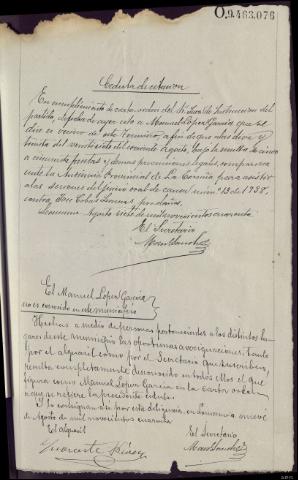 O.9.463.076
Cedula de citacion
En cumplimiento de carta orden del Sr. Juez de Instruccion del
partido, de fecha de ayer cito a Manuel Lopez Garcia, que se
dice es vecino de este termino, a fin de que a las diez y
treinta del veintiseis del corriente Agosto, bajo la multa de cinco
a cincuenta pesetas y demas prevenciones legales, comparezca
ante la Audiencia Provincial de La Coruña para asistir
a las sesiones del juicio oral de causa num. 13 de 1938,
contra Jose Cobas por daños.
Agosto siete de mil novecientos cuarenta
El Secretario
El Manuel Lopez Garcia
no es conocido en este municipio
Hechas a medio de personas pertenecientes a los distintos lu-
gares de este municipio las oportunas averiguaciones, tanto
por el alguacil como por el Secretario que suscriben,
resulta completamente desconocido en todos ellos el que
figura como Manuel Lopez Garcia en la carta orden
a que se refiere la precedente cedula.
Y lo consignan asi por esta diligencia, en nueve
de Agosto de mil novecientos cuarenta
El alguacil
El Secretario